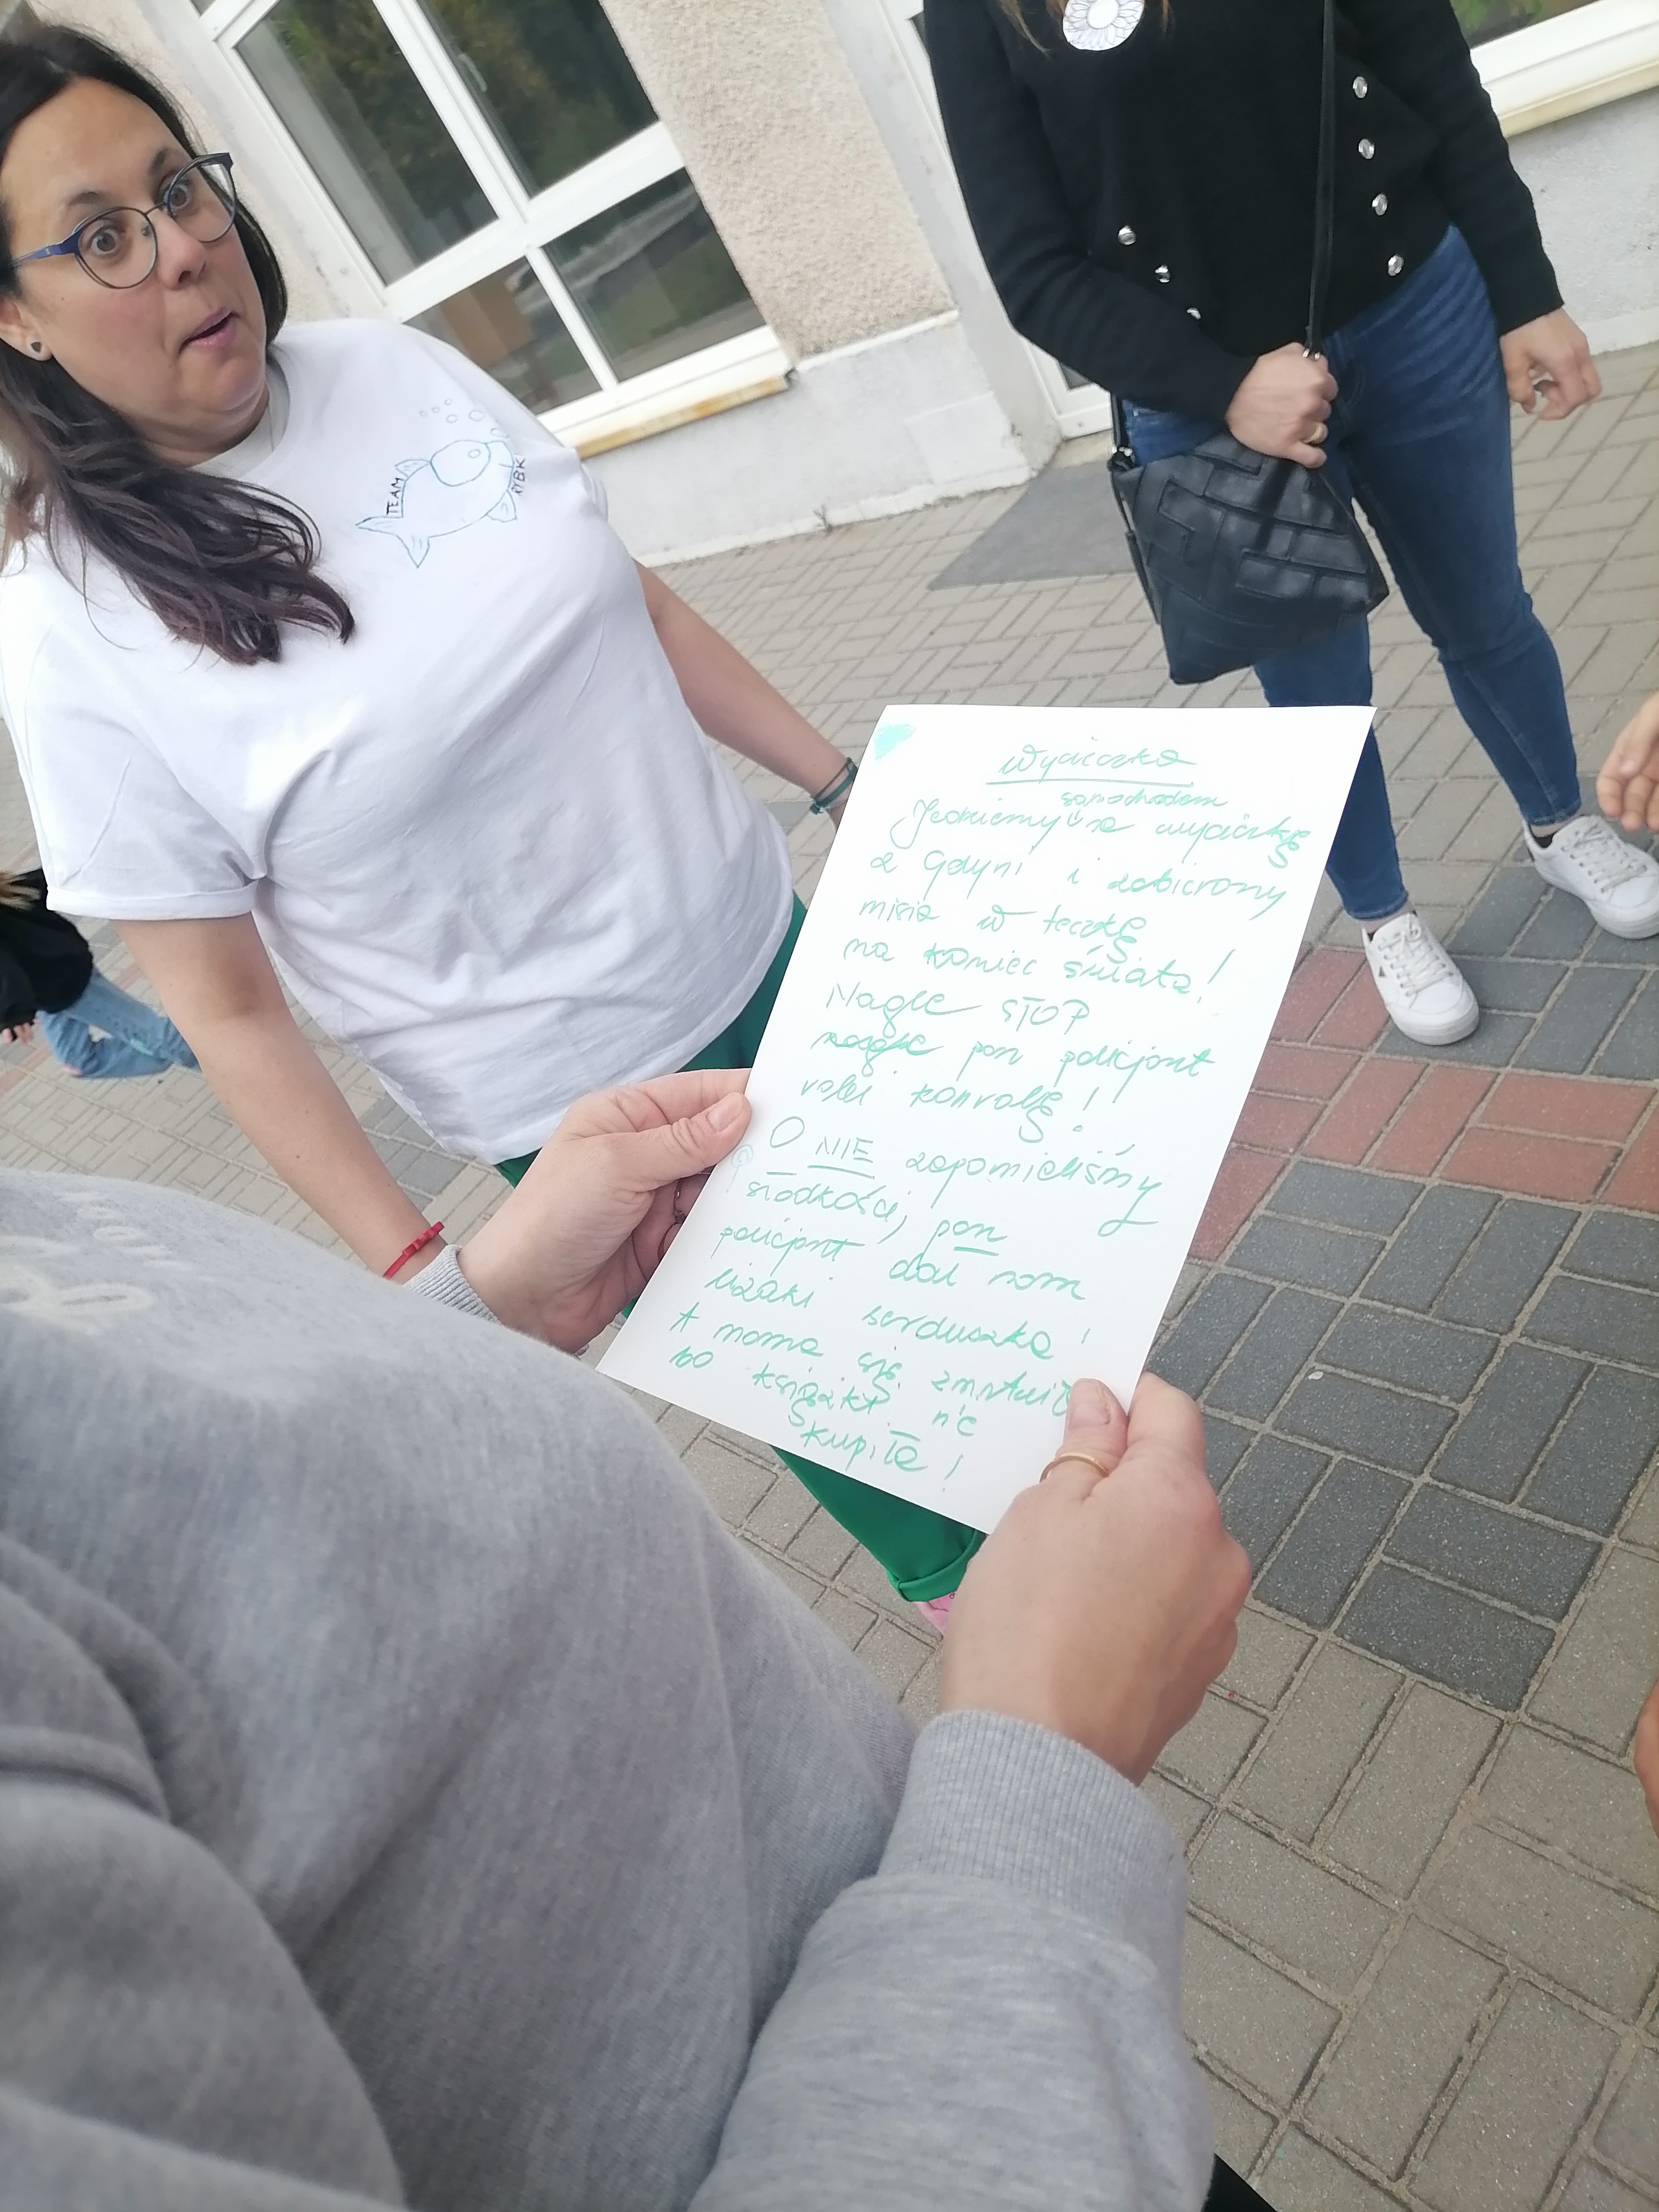 TEAM
RYBK
Wycieczka
samochodem
Jedziemy na wycieczkę
z Gdyni i zabieramy
misia w teczkę
na koniec świata!
Nagle STOP
nagle pan policjant
robi konrolę!
O NIE zapomieliśmy
słodkości, pan
policjant dał nam
lizaki serduszka!
A mama się zmartwiła
bo książki nic
kupiła!